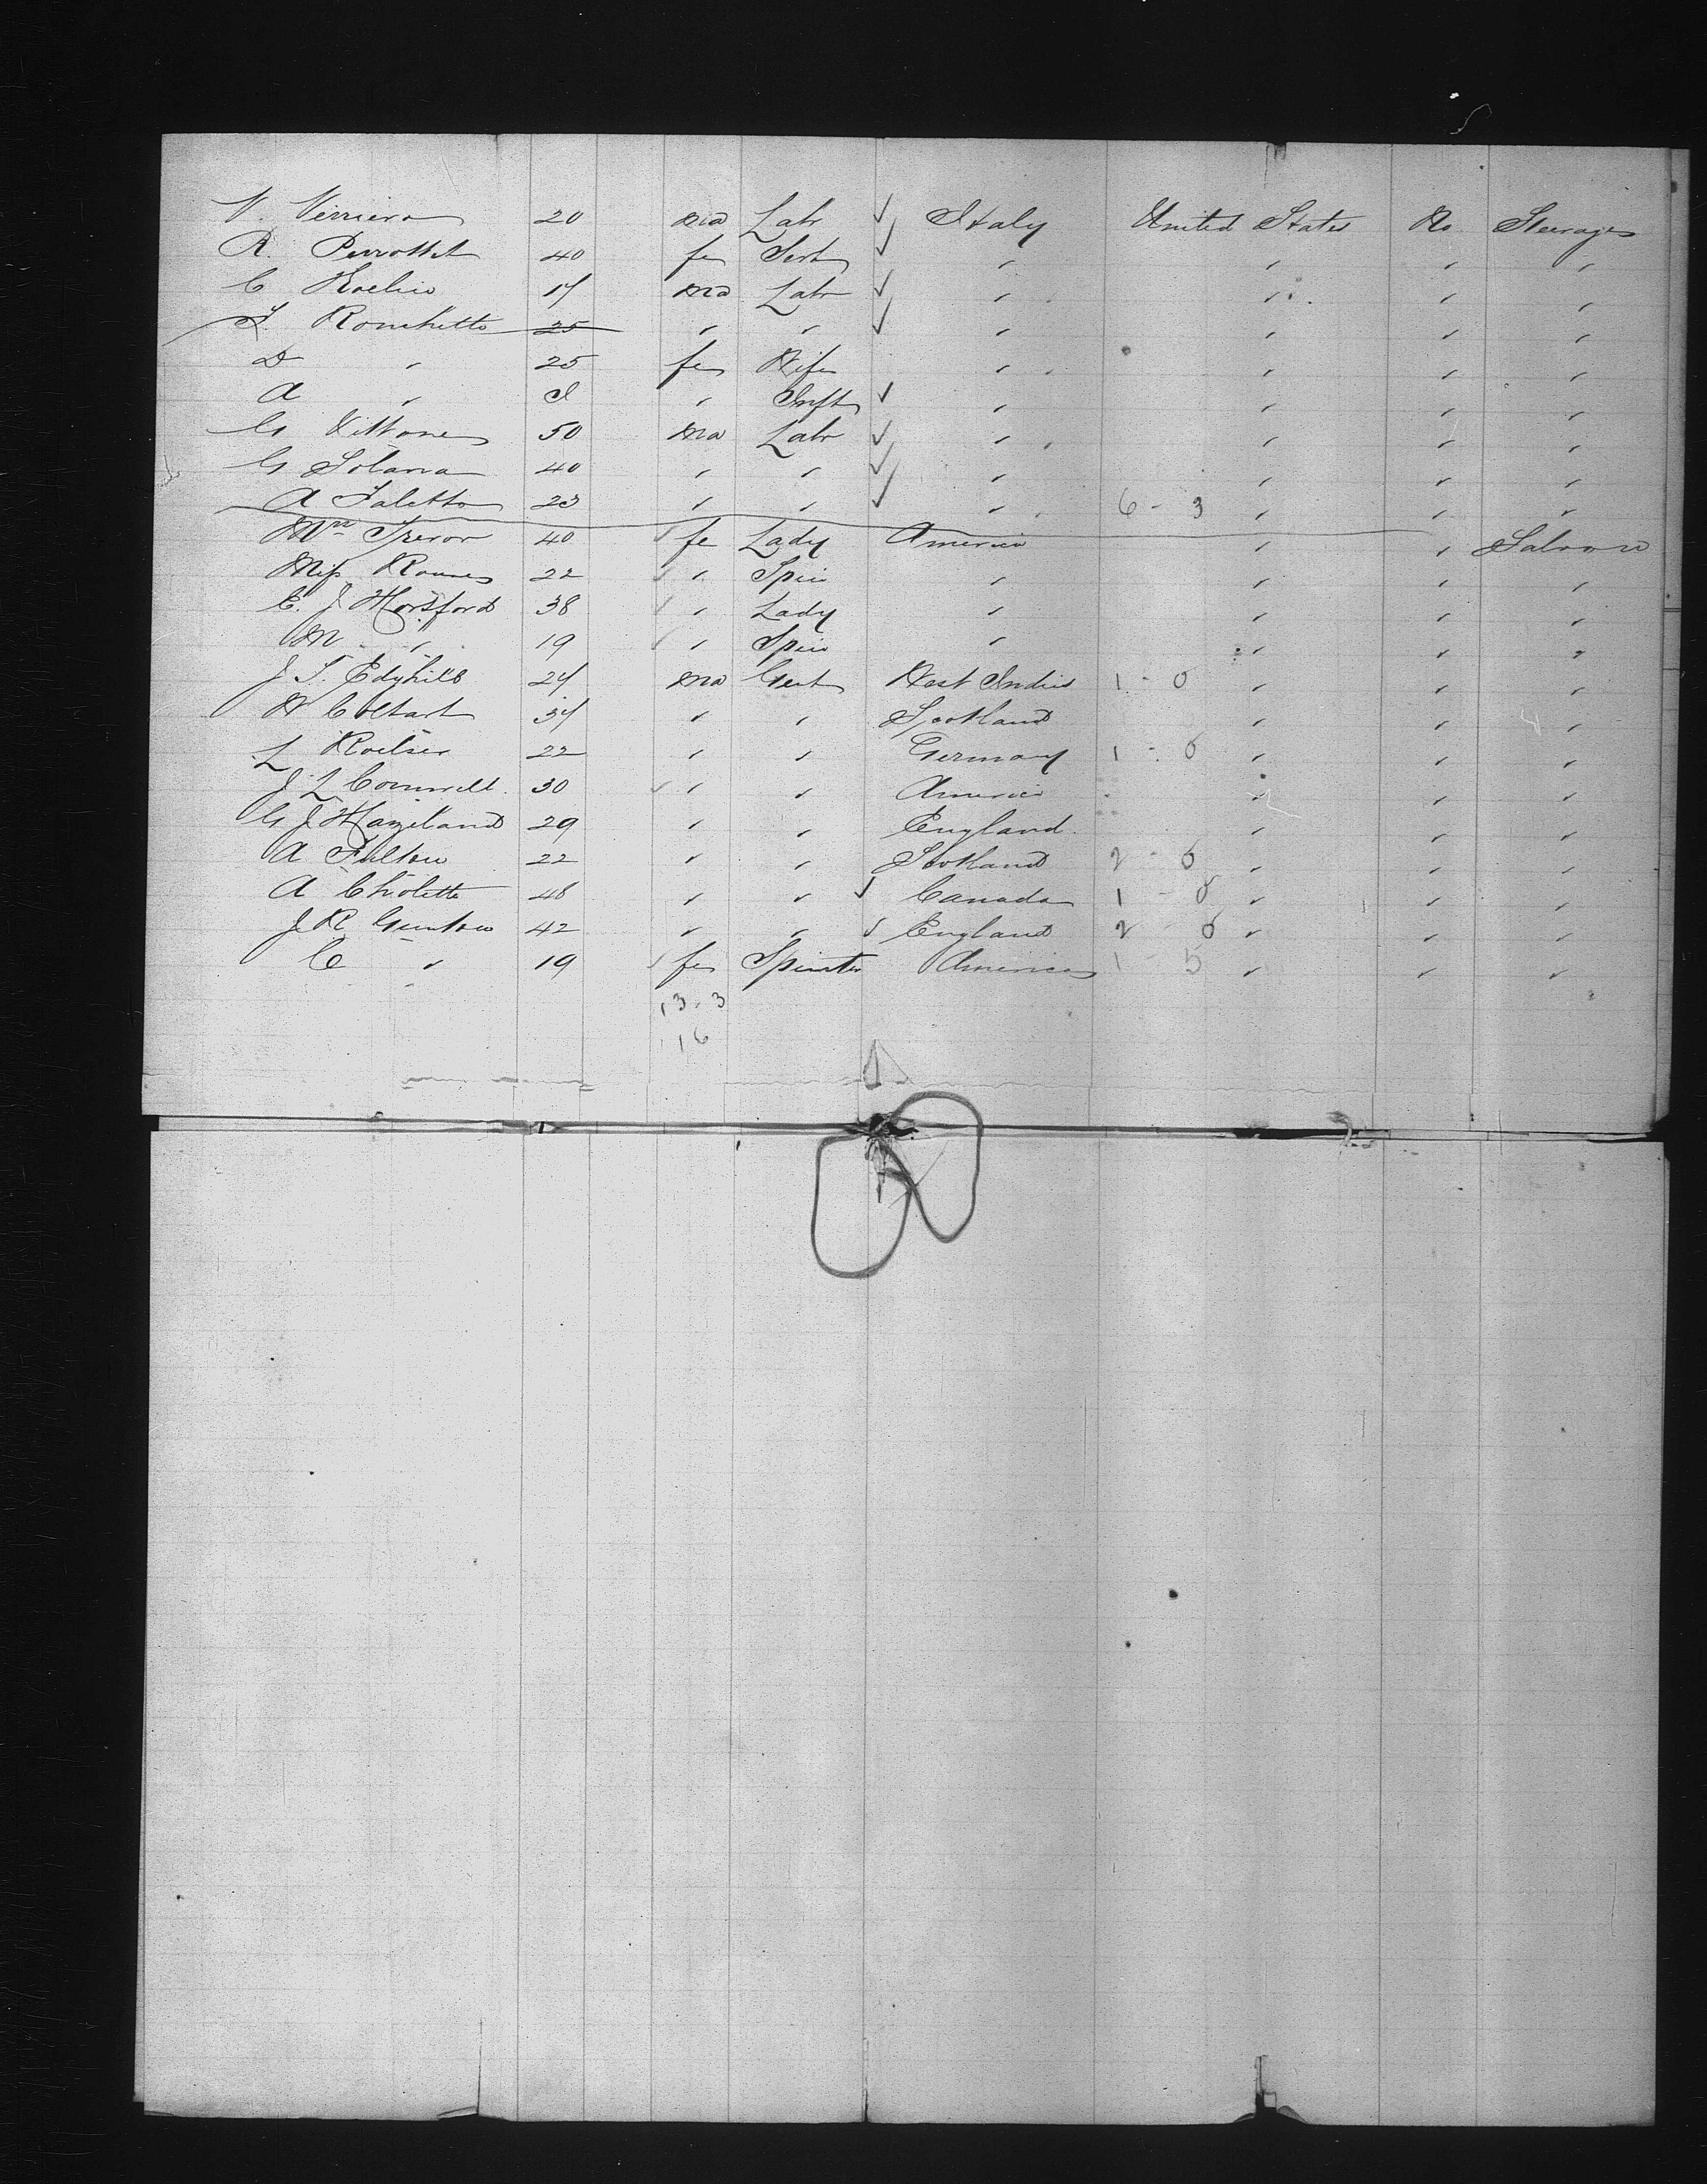 V. Verriera 20 ma Labr ✓ Italy United States No Steerage
R. Perrottet 40 fe Sert ✓ " " " "
C 17 ma Labr ✓ " " " "
F. Ronchetto 25 " " ✓ " " " "
D " 25 fe Wife " " " "
A " I " Inft ✓ " " " "
G Vittone 50 ma Labr ✓ " " " "
G Solara 40 " " ✓ " " " "
A Faletto 23 " " ✓ " 6 - 3 " " "
Mrs Trevor 40 ✓ fe Lady America " " Saloon
Miss 22 ✓ " Spin " " " "
E. J Horsford 38 ✓ " Lady " " " "
M " 19 ✓ " Spin " " " "
J. T. Edghill 24 ma Gent West Indies 1 - 0 " " "
W Coltart 34 " " Scotland " " "
L 22 " " Germany 1 - 0 " " "
J L Cornwell 30 ✓ " " America " " "
G J Hazeland 29 " " England " " "
A Fulton 22 " " Scotland 2 - 0 " " "
A Cholette 48 " " ✓ Canada 1 - 0 " " "
J. R. Gunton 42 " " ✓ England 2 - 0 " " "
C " 19 ✓ fe Spinster America 1 5 " " "
13 - 3
16